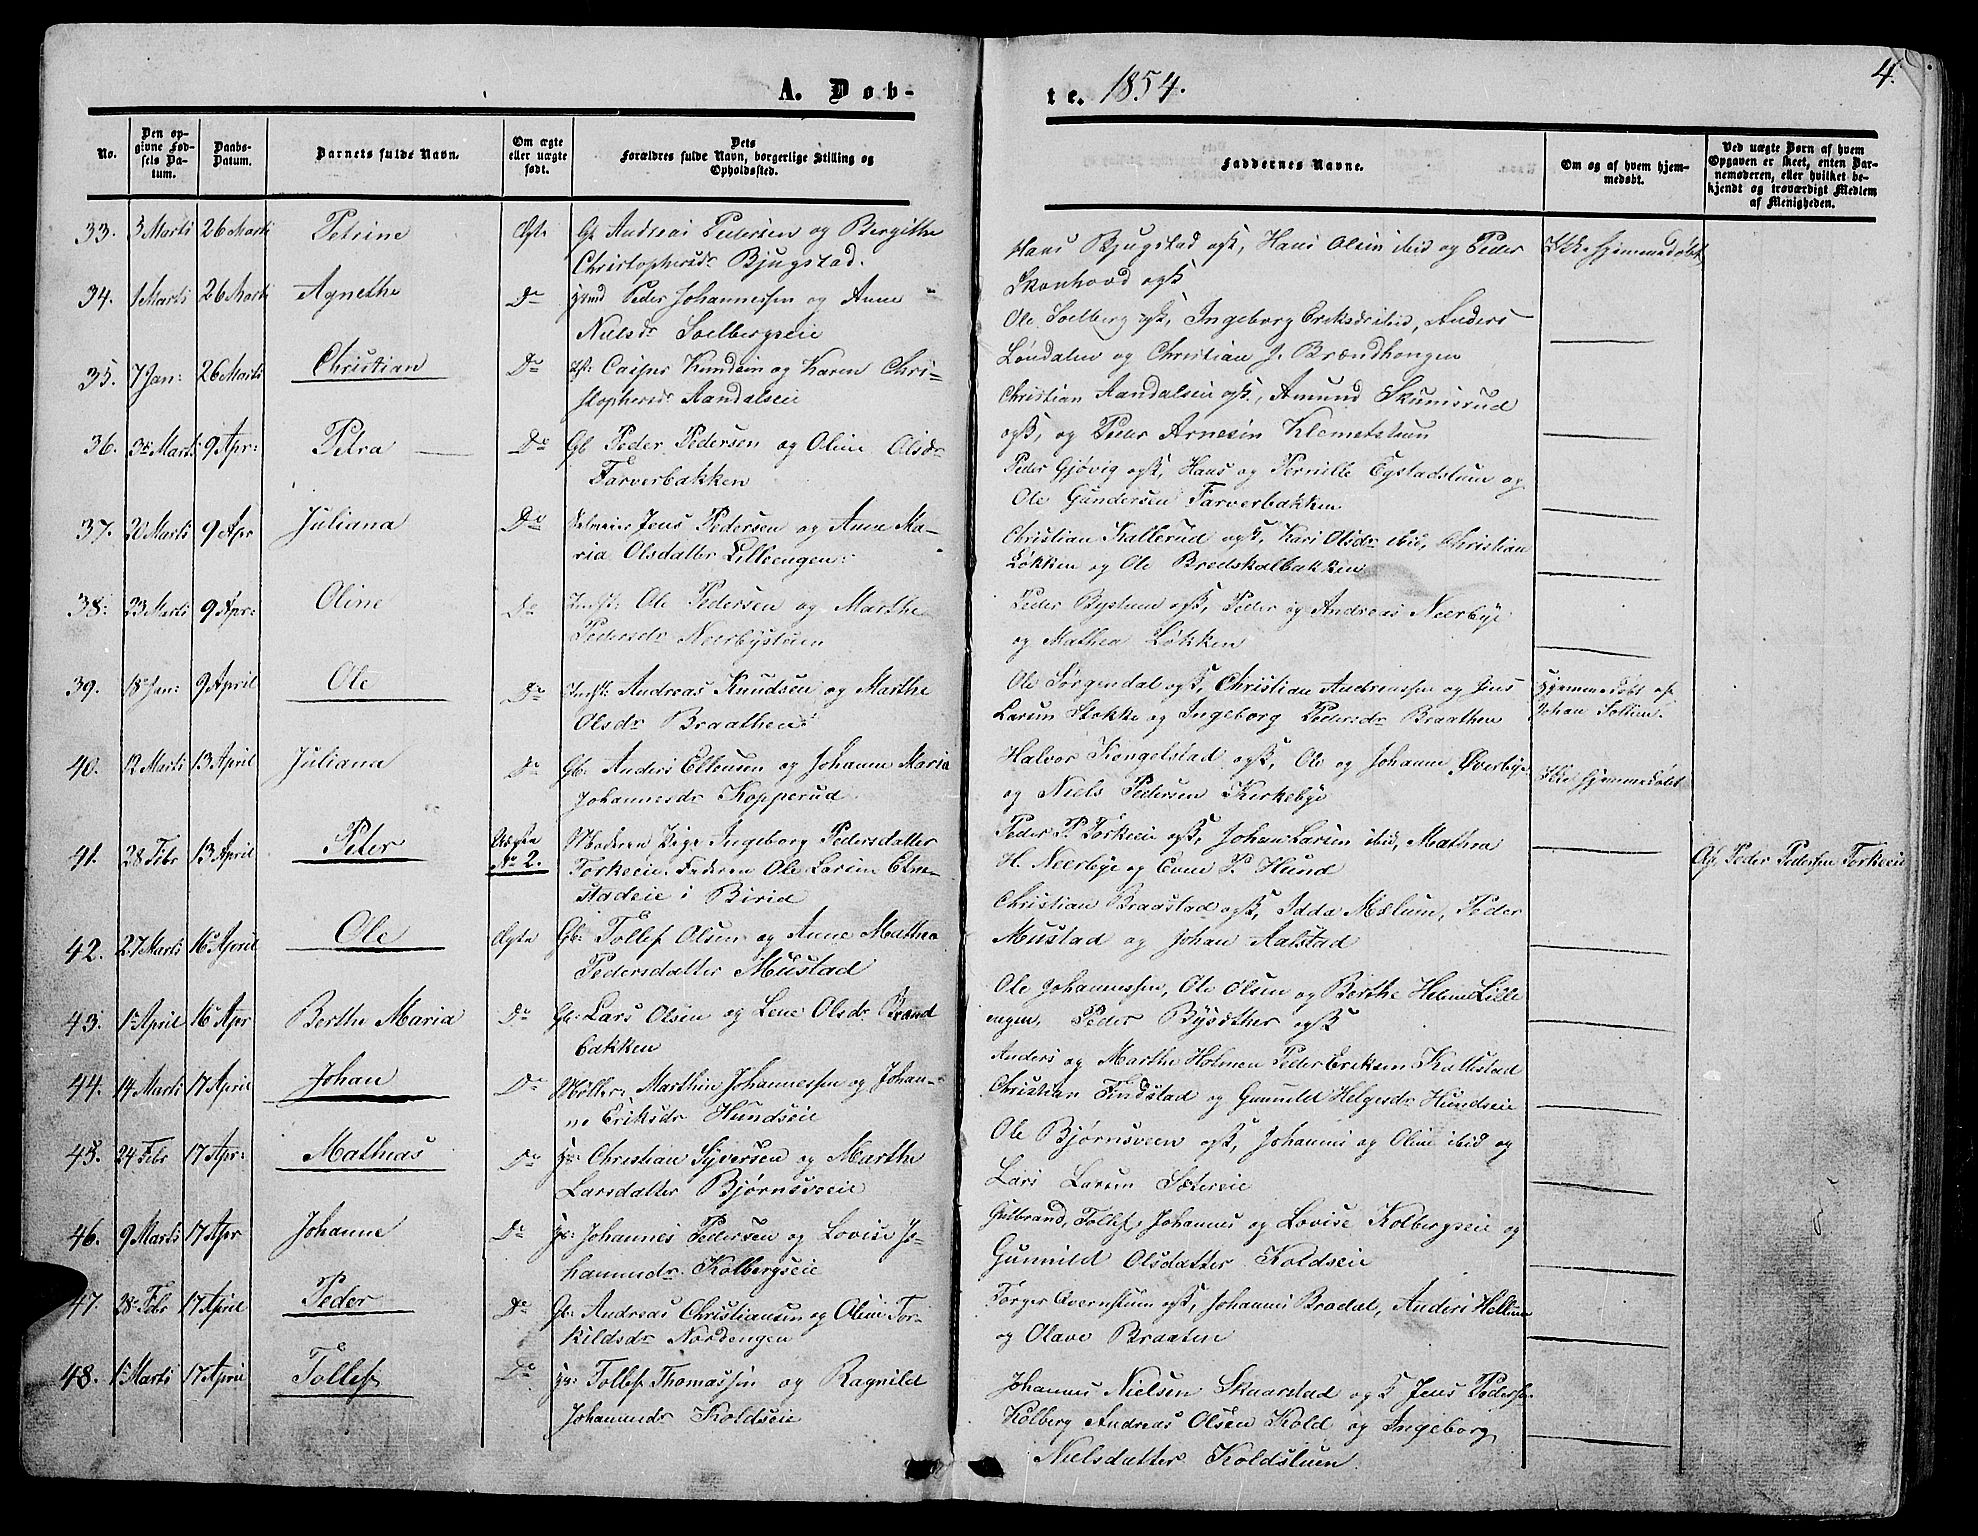 A. Døb-
te. 1854.
4.
No.
Den op-
givne Fød-
sels Da-
tum.
Daabs-
Datum.
Barnets fulde Navn.
Om ægte
eller uægte
født.
Dets
Forældres fulde Navn, borgerlige Stilling og
Opholdssted.
Faddernes Navne.
Om og af hvem hjem-
medøbt.
Ved uægte Børn af hvem
Opgaven er skeet, enten Bar-
nemoderen, eller hvilket be-
kjendt og troværdigt Medlem
af Menigheden.
33. 3 Marts 26 Marts Petrine Ægte Gb Andreas Pedersen og Bergithe
Christophersdr Bjugstad.
Hans Bjugstad ogsß, Hans Olsen ibid og Peder
Skonhovd ogsß
Ikke hjemmedøbt
34. 1 Marts 26 Marts Agnethe Do Hmd Peder Johannessen og Anne
Nielsdr Soelbergseie
Ole Soelberg ogsß, Ingeborg Eriksdr ibid, Anders
Løndalen og Christian J. Brændhongen
35. 7 Jan: 26 Marts Christian Do Casper Knudsen og Karen Chri-
stophersdr Aandalseie
Christian Aandalseie ogsß, Amund Skumsrud
ogsß, og Peder Arnesen Klemetstuen
36. 3 Marts 9 Apr: Petra Do Gb Peder Pedersen og Oline Olsdr
Farverbakken
Peder Gjøvig ogsß, Hans og Pernille Egstadstuen og
Ole Gundersen Farverbakken
37. 20 Marts 9 Apr Juliana Do Jens Pedersen og Anne Ma-
ria Olsdatter Lilleengen:
Christian Kallerud ogsß, Kari Olsdr ibid, Christian
Løkken og Ole Bredskalbakken
38: 23 Marts 9 Apr: Oline Do Indst: Ole Pedersen og Marthe
Pedersdr Neerbystuen
Peder Bystuen ogsß, Peder og Andreas Neerbye
og Mathea Løkken
39. 18 Jan: 9 April Ole Do Indst: Andreas Knudsen og Marthe
Olsdr Braathen
Ole Sørgendal ogsß, Christian Andreassen og Jens
Larsen Stokke og Ingeborg Pedersdr Braathen
Hjemmedøbt af
Johan Sollien.
40. 12 Marts 13 April Juliana Do Gb: Anders Ellensen og Johanne Maria
Johannesdr Kopperud
Halvor Kongelstad ogsß, Ole og Johanne Øverbye
og Niels Pedersen Kirkebye
Ikke hjemmedøbt
41. 28 Febr 13 April Peter Uægte
No 2. Moderen Pige Ingeborg Pedersdatter
Torkeeie. Faderen Ole Larsen Elm-
stadeie i Birid
Peder P. Torkeeie ogsß, Johan Larsen ibid, Mathea
H. Neerbye og Evene P. Hund
Af Peder Pedersen Torkeeie
42. 27 Marts 16 April Ole Ægte Gb: Tollef Olsen og Anne Mathea
Pedersdatter Mustad
Christian Braastad ogsß, Idda Mælum, Peder
Mustad og Johan Aalstad
43. 1 April 16 Apr Berthe Maria Do Gb: Lars Olsen og Lene Olsdr Brænd
bakken
Ole Johannessen, Ole Olsen og Berthe Helene Lille
engen, Peder Bysæther ogsß
44. 14 Marts 17 April Johan Do Møller: Marthin Johannessen og Johan-
ne Eriksdr Hundseie
Anders og Marthe Holmen Peder Eriksen Kallestad
Christian Findstad og Gunnild Helgesdr Hundseie
45. 24 Febr 17 Apr: Mathias Do Christian Syversen og Marthe
Larsdatter Bjørnsveeie
Ole Bjørnsveen ogsß, Johannes og Oline ibid og
Lars Larsen Sætereie
46. 9 Marts 17 Apr Johanne Do Johannes Pedersen og Lovise Jo-
hannesdr. Kolbergseie
Gulbrand, Tollef, Johannes og Lovise Kolbergseie og
Gunnild Olsdatter Koldseie
47. 28 Febr 17 April Peder Do Gb: Andreas Christiansen og Oline Tor-
kildsdr Nordengen
Torger Overnstuen ogsß, Johannes Bradal, Anders Hellum
og Olave Braaten
48. 1 Marts 17 April Tollef Do Tollef Thomassen og Ragnild
Johannesdr Koldseie
Johannes Nielsen Skaarstad ogsß Jens Peders.
Kolberg Andreas Olsen Kold og Ingeborg
Nielsdatter Koldstuen